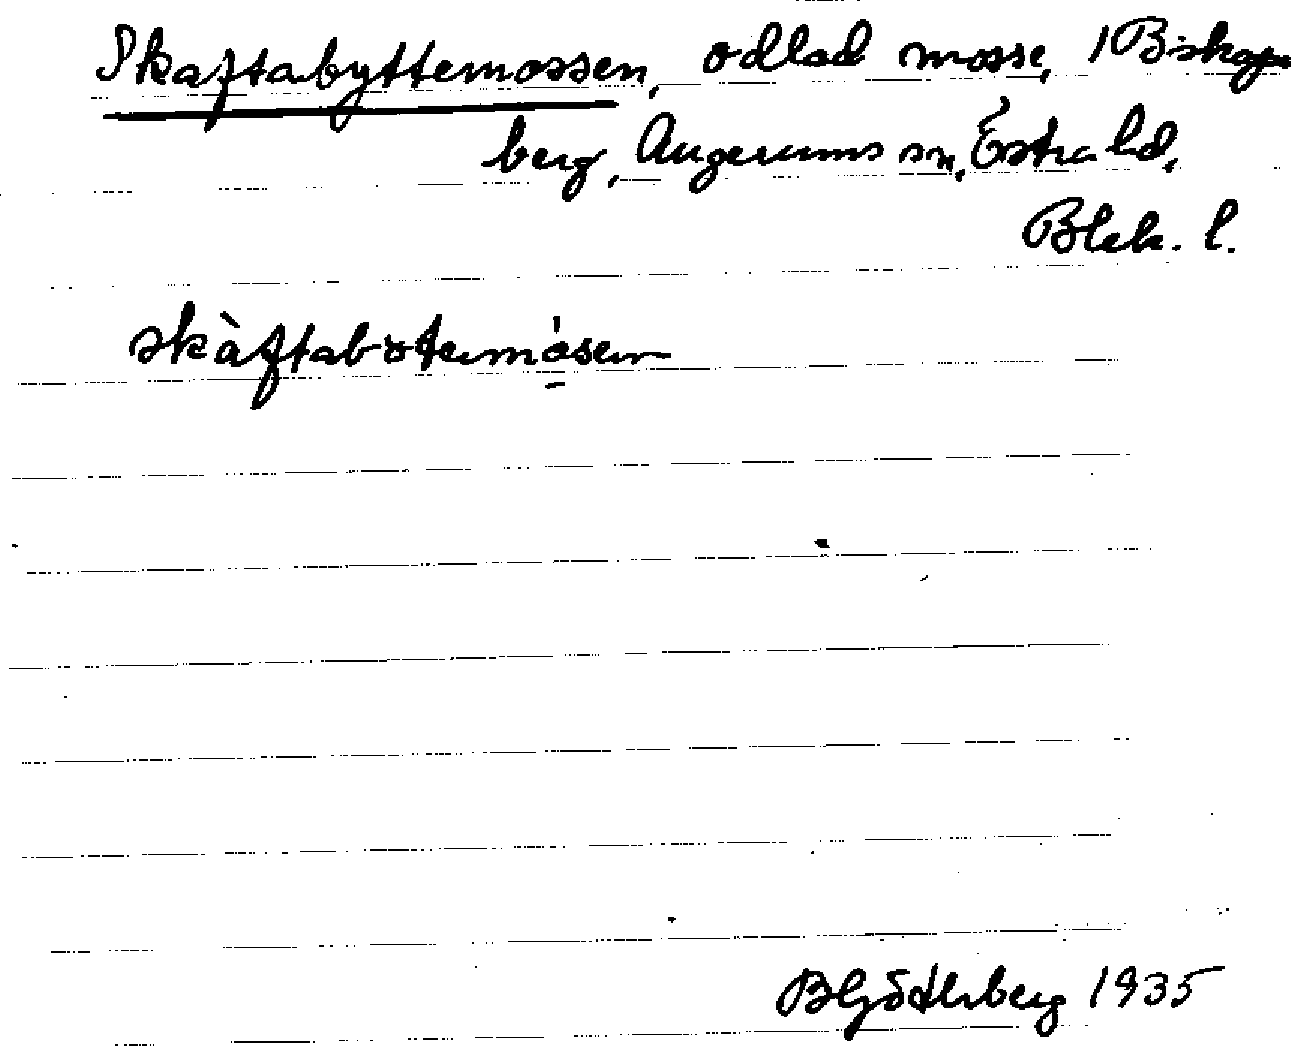 Skaftabyttemossen, odlad mosse, 1 Biskops
berg, Augerums sn, Östra hd,
Blek. l.
skàftabötermósen
BGötherberg 1935